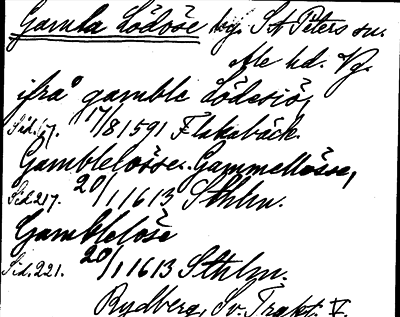 Gamla Lödöse by. S:t Peters sn.
Ale hd. Vg.
ifrå gamble Lödesiö,
Sid. 17. 17/8 1591 Flakabäck.
Gamblelösse. Gammellösse,
Sid. 217. 20/1 1613 Sthlm.
Gamblelöse
Sid. 221. 20/1 1613 Sthlm.
Rydberg, Sv. Trakt. V.